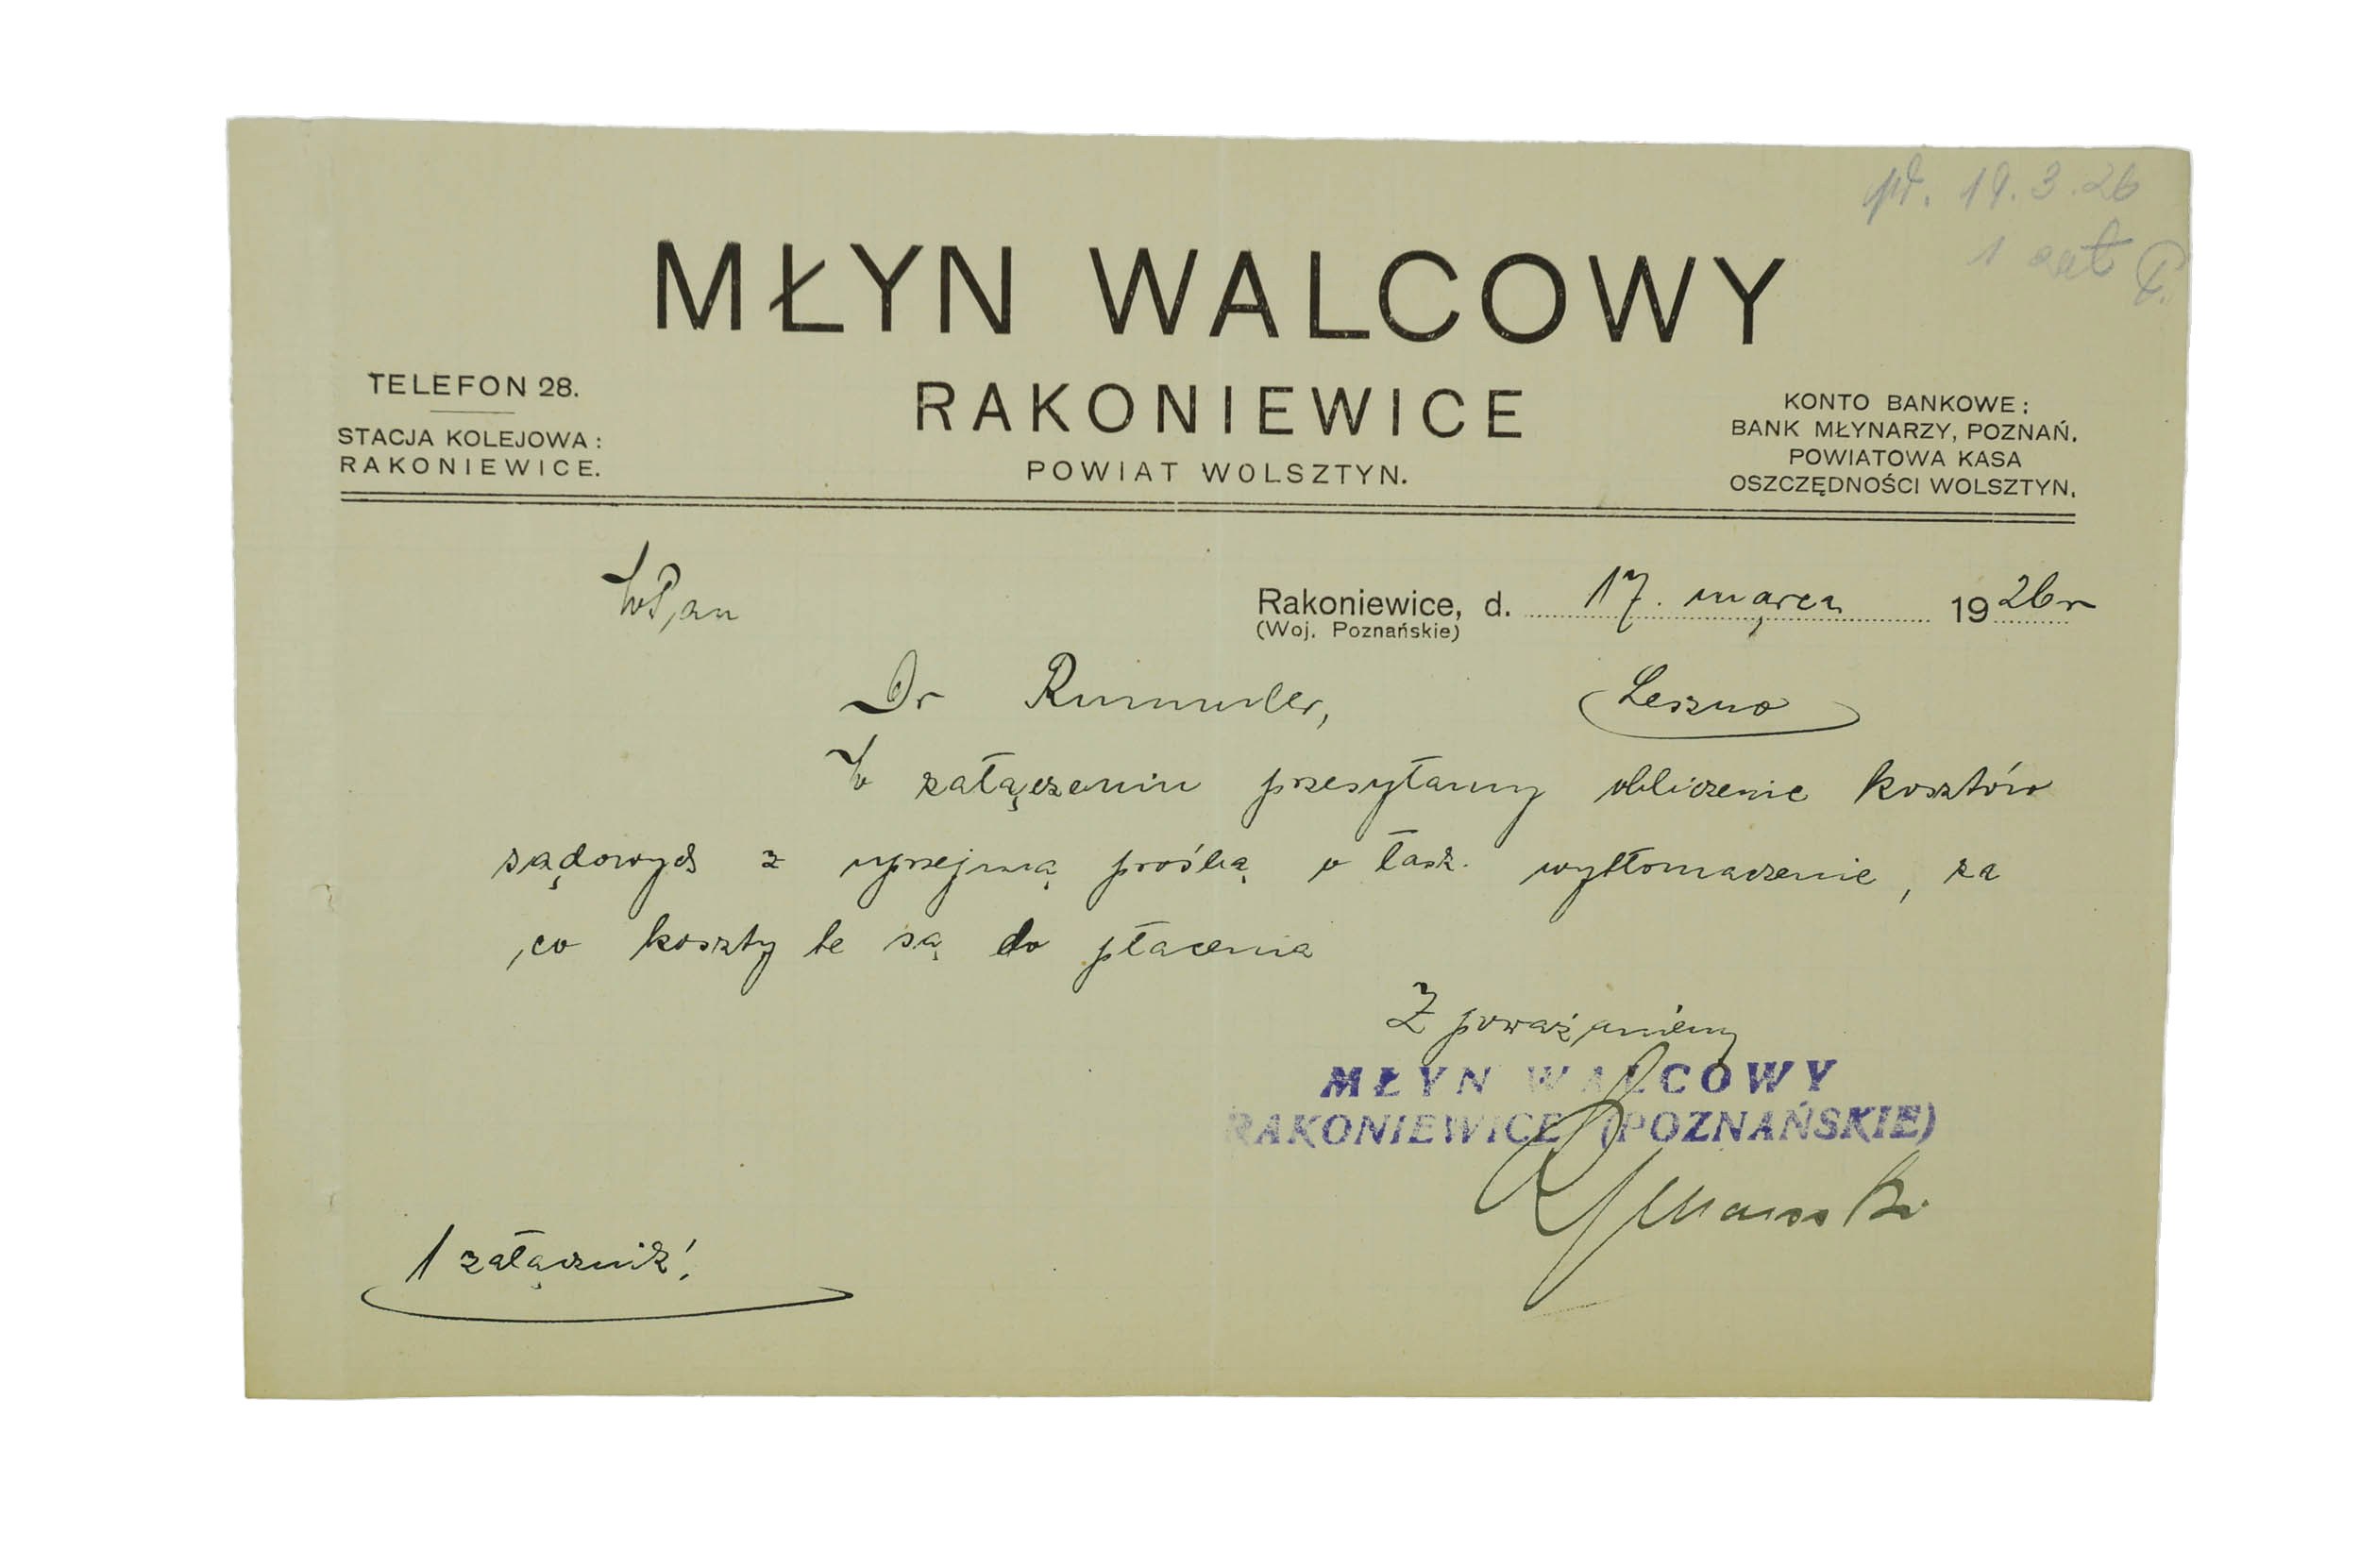 pr. 19.3.26
1 zał
MŁYN WALCOWY
RAKONIEWICE
POWIAT WOLSZTYN.
TELEFON 28.
STACJA KOLEJOWA:
RAKONIEWICE.
KONTO BANKOWE:
BANK MŁYNARZY, POZNAŃ.
POWIATOWA KASA
OSZCZĘDNOŚCI WOLSZTYN.
WPan
Rakoniewice, d. 17. marca 1926r
(Woj. Poznańskie)
Dr Leszno
W załączeniu przesyłamy obliczenie kosztów
sądowych z uprzejmą prośbą o łask. wytłomaczenie, za
co koszty te są do płacenia
Z poważaniem
MŁYN WALCOWY
RAKONIEWICE (POZNAŃSKIE)
1 załącznik!